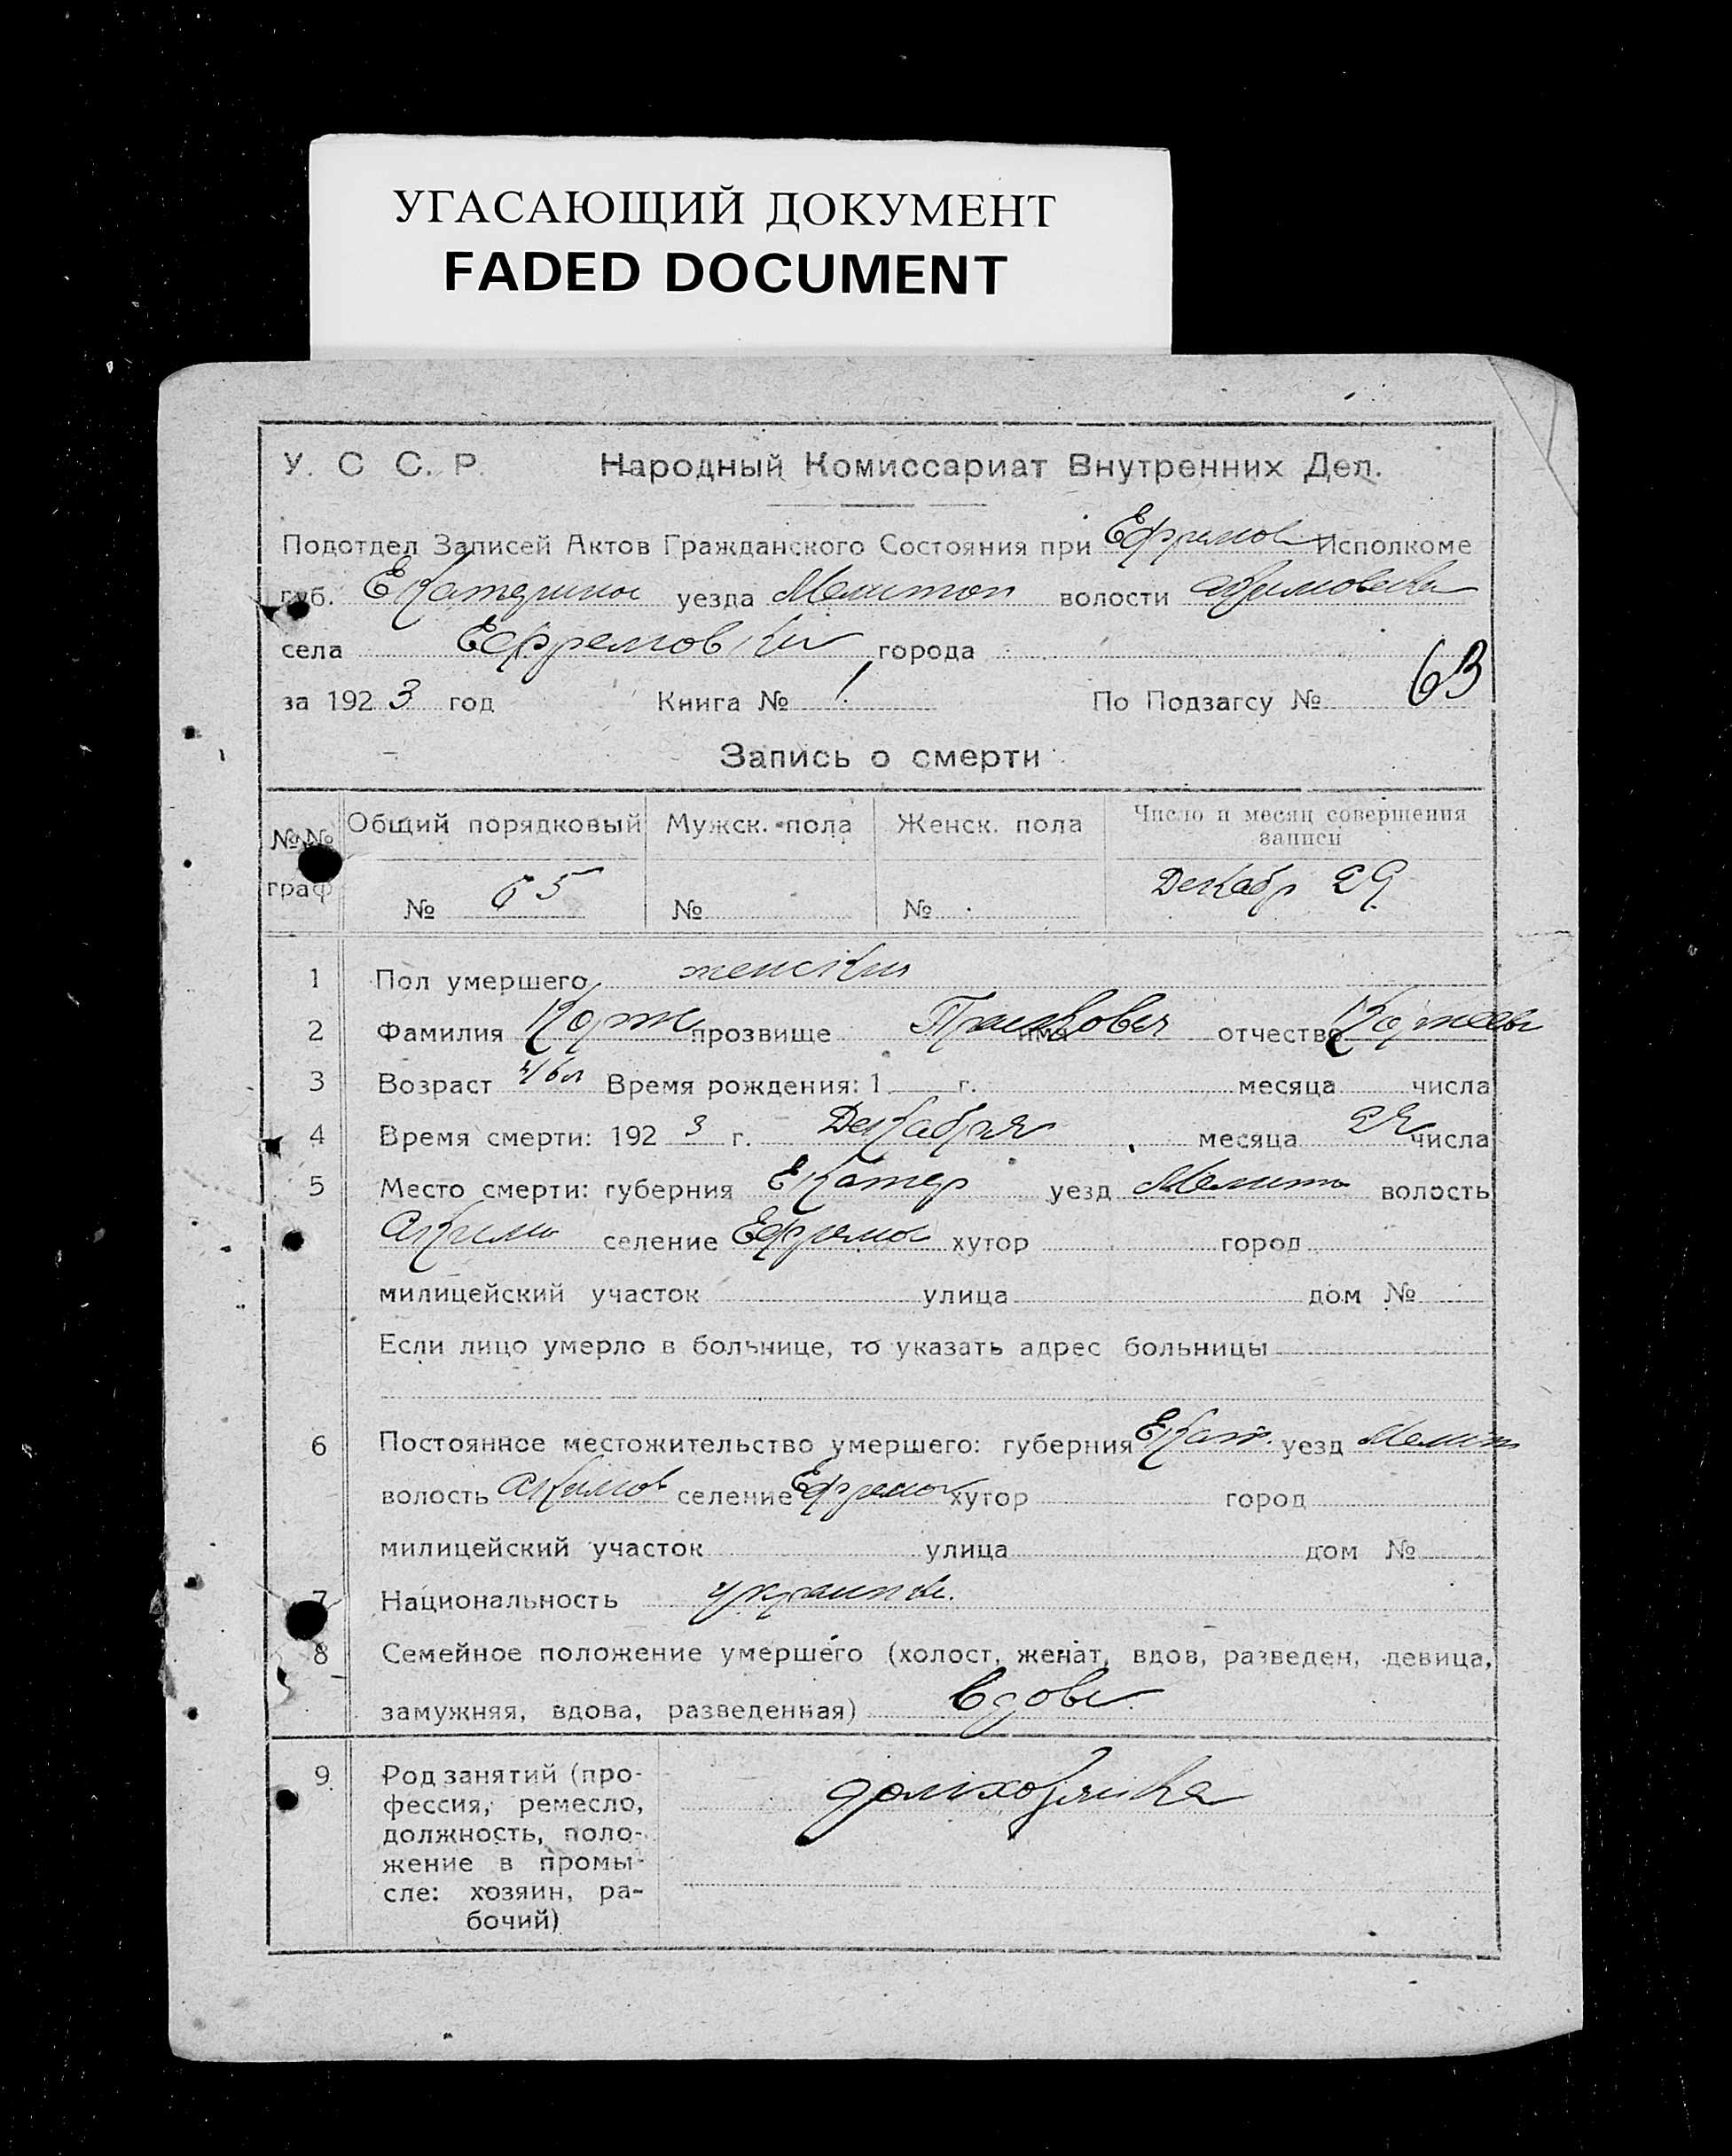 УГАСАЮЩИЙ ДОКУМЕНТ
FADED DOCUMENT
У. С С. Р. Народный Комиссариат Внутренних Дел.
Подотдел Записей Актов Гражданского Состояния при Ефремов Исполкоме
губ. Екатеринос уезда Мелитоп волости Акимовска
села Ефремовки города
за 1923 год Книга № 1 По Подзагсу № 63
Запись о смерти
№№ граф Общий порядковый Мужск. пола Женск. пола Число и месяц совершения записи
№ 65 № № Декабр 29
1 Пол умершего женский
2 Фамилия Корж прозвище имя Прасковья отчество
3 Возраст Время рождения: 1 г. месяца числа
4 Время смерти: 1923 г. Декабря месяца числа
5 Место смерти: губерния Екатер уезд Мелит волость
Акимо селение Ефремов хутор город
милицейский участок улица дом №
Если лицо умерло в больнице, то указать адрес больницы
6 Постоянное местожительство умершего: губерния Екат. уезд Мелит
волость Акимов селение Ефремов хутор город
милицейский участок улица дом №
7 Национальность украинк.
8 Семейное положение умершего (холост, женат, вдов, разведен, девица,
замужняя, вдова, разведенная) вдова
9 Род занятий (про-
фессия, ремесло,
должность, поло-
жение в промы-
сле: хозяин, ра-
бочий)
домхозяйка